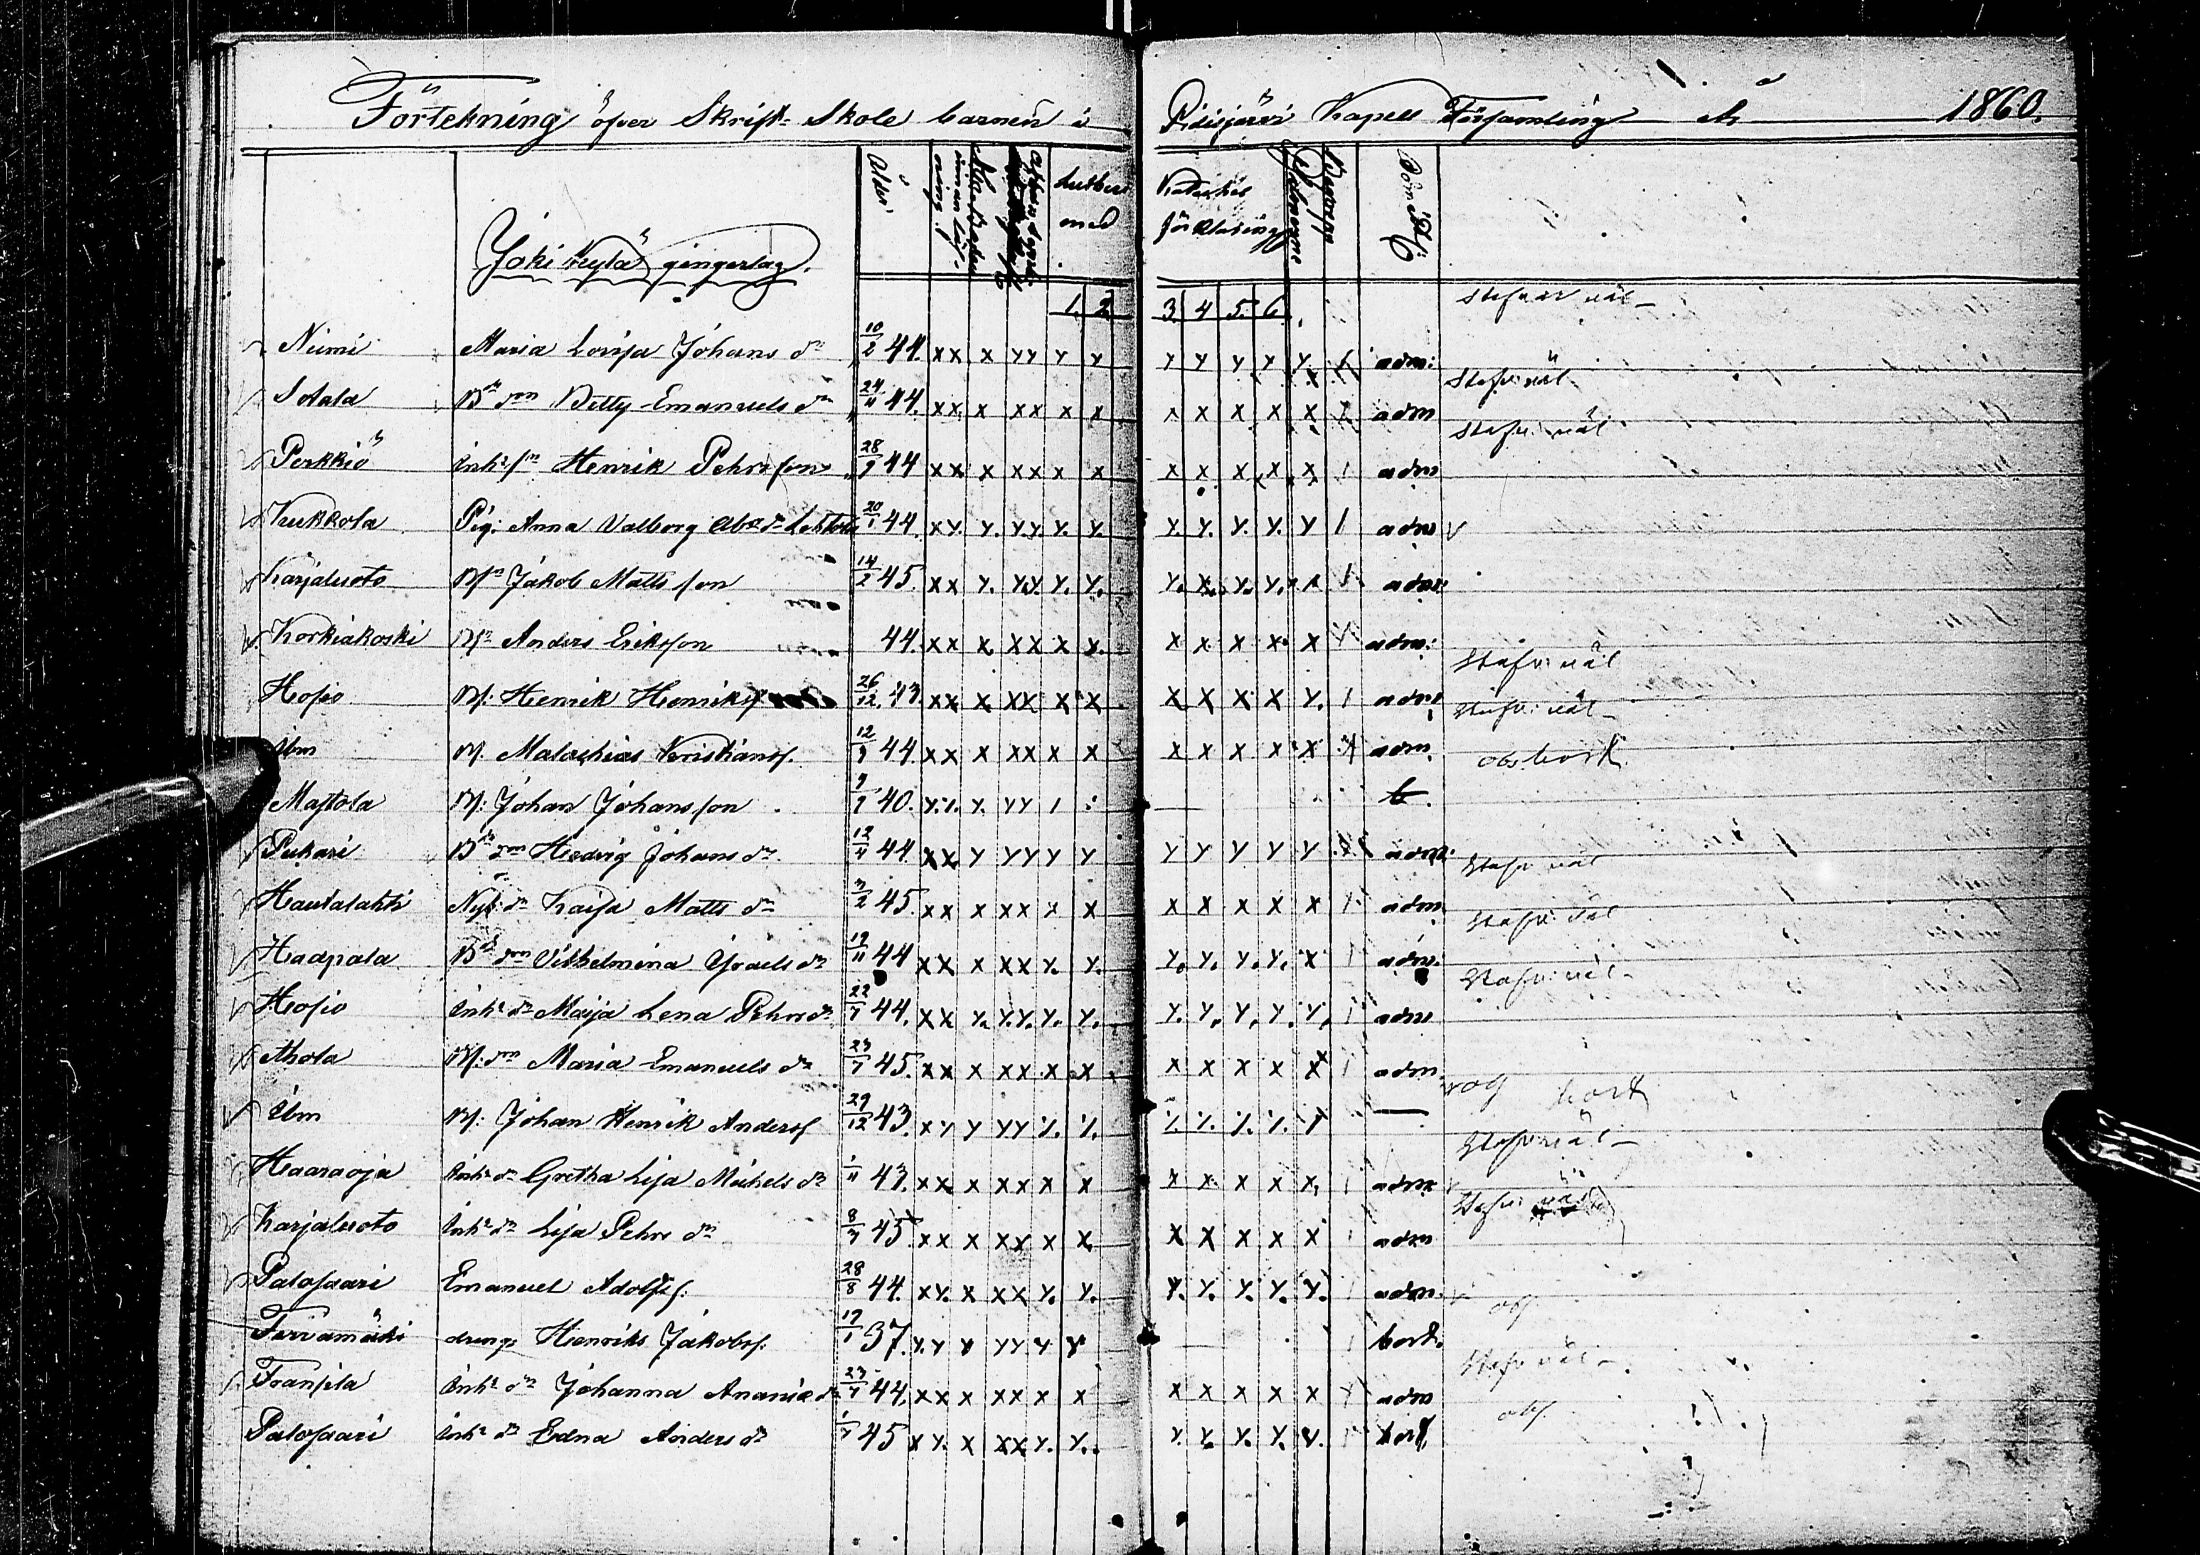 Förtekning öfver Skrift-Skole barnen i Pidisjärvi Kapell Församling År 1860.
Joki Kylä gingerlag.
Ålder
Luthers
med
Kateches
förklaring
1. 2. 3. 4. 5. 6.
stafvar väl
Niemi Maria Lovisa Johans dr 10/2 44. xx x xx x x x x x x x adm:
Stafv. väl
Sotala Bde dm Betty Emanuels dr 24/11 44. xx x xx x x x x x x x adm
Stafv. väl
Perkkiö Inhs sn Henrik Pehrsson 28/9 44 xx x xx x x x x x x x 1 adm
Kukkola Pig: Anna Valborg Abr. dr Lehtola 20/1 44. xx x xx x x x x x x x 1 adm
Karjaluoto Bsn Jakob Matts son 14/2 45. xx x xx x x x x x x x 1 adm
Korkiakoski Bsn Anders Eriksson 44. xx x xx x x x x x x x adm:
Stafv. väl
Hosio Bs: Henrik Henriks 26/12 43. xx x xx x x x x x x x 1 adm
Stafv. väl
Ibm Bs. Malachias Kristianss. 12/9 44. xx x xx x x x x x x x adm.
obs bort
Majtola Bs: Johan Johansson 40. xx x xx 1 b.
Pukari Bde dm Hedvig Johans dr 12/4 44 xx x xx x x x x x x x adm.
Stafv väl
Hautalahti Nyb: dr Kajsa Matts dr 2/2 45. xx x xx x x x x x x x adm
Stafv. väl
Haapala Bde dm Vilhelmina Israels dr 19/11 44 xx x xx x x x x x x x 1 adm.
Stafv. väl
Hosio Inhs dr Maija Lena Pehrs dr 22/7 44. xx x xx x x x x x x x 1 adm
Ahola Bs: dm Maria Emanuels dr 23/7 45. xx x xx x x x x x x x 1 adm
og bort
Ibm Bs: Johan Henrik Anderss 29/12 43. xx x xx x x x x x x x —
Stafv. väl
Haaraoja Inhs dr Gretha Lisa Michels dr 1/11 43. xx x xx x x x x x x x 1 adm
Stafv. väl
Karjaluoto Inhs dr Lisa Pehrs dr 8/7 45. xx x xx x x x x x x x 1 adm
Palosaari Emanuel Adolfs s. 28/8 44. xx x xx x x x x x x x 1 adm.
obs.
Tervamäki dreng Henriks Jakobss. 17/1 37. xx x xx x x 1 bort.
Stafv. väl
Franssila Inhs dr Johanna Ananiæ dr 23/7 44. xx x xx x x x x x x x adm
obs.
Palosaari Inhs dr Edna Anders dr 1/7 45 xx x xx x x x x x x x 1 bort